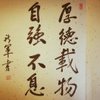 厚德載物
自強不息